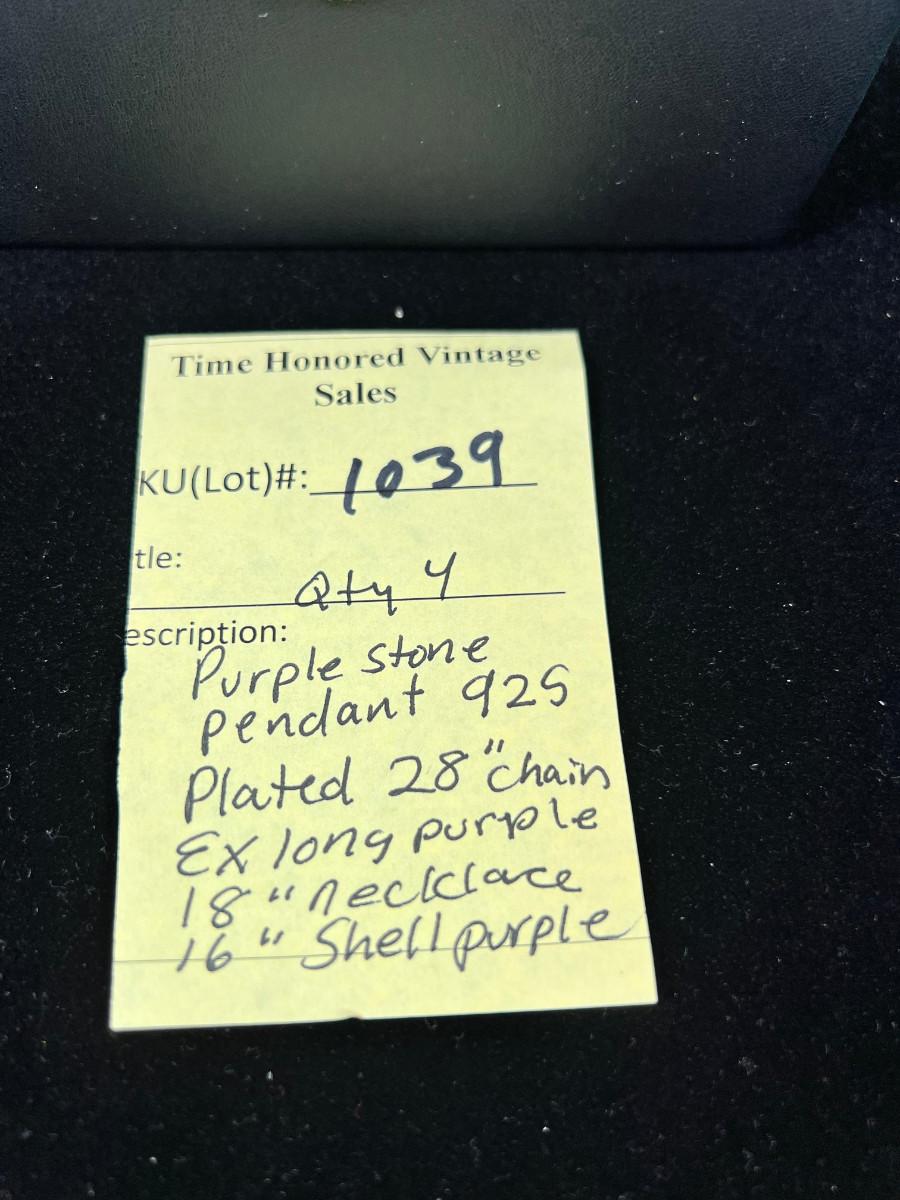 Time Honored Vintage
Sales
KU(Lot)#: 1039
tle:
Qty 4
escription:
Purple stone
pendant 925
Plated 28" chain
Ex long purple
18" necklace
16" Shell purple